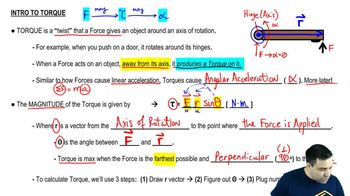 INTRO TO TORQUE
F may → τ may → α
Hinge (Axis)
r
F
● TORQUE is a "twist" that a Force gives an object around an axis of rotation.
- For example, when you push on a door, it rotates around its hinges.
F→α=0
- When a Force acts on an object, away from its axis, it produces a Torque on it.
- Similar to how Forces cause linear acceleration, Torques cause Angular Acceleration (α). More later!
ΣF=ma
● The MAGNITUDE of the Torque is given by τ = F r sinθ [N·m]
- Where r is a vector from the Axis of Rotation to the point where the Force is Applied
- θ is the angle between F and r.
- Torque is max when the Force is the farthest possible and Perpendicular (90 to the
(⊥)
- To calculate Torque, we'll use 3 steps: (1) Draw r vector → (2) Figure out θ → (3) Plug